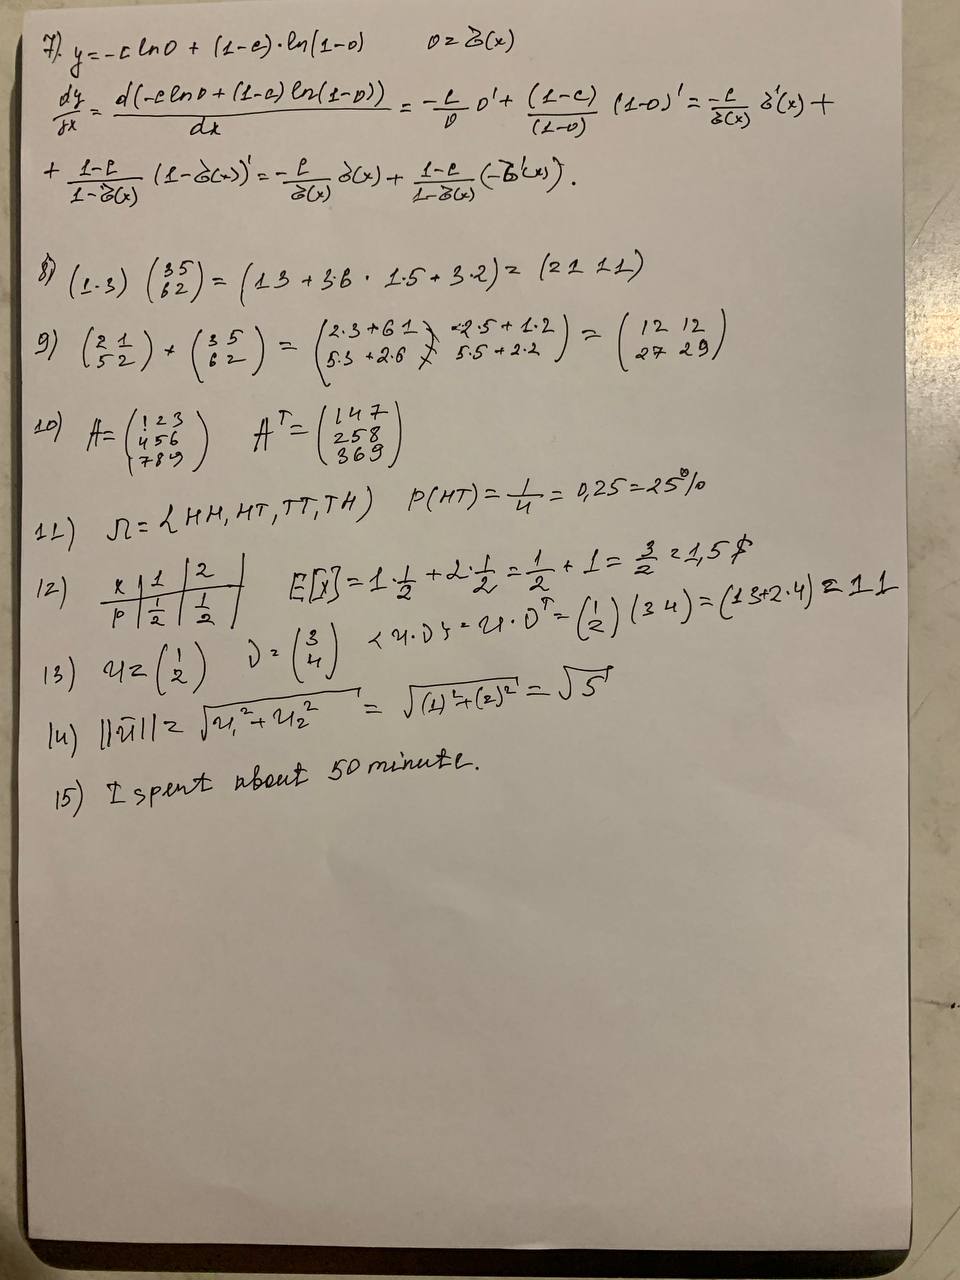 7). y = -c ln O + (1-c)·ln(1-O)    O = σ(x)
dy/dx = d(-c ln O + (1-c) ln(1-O))/dx = -c/O O' + (1-c)/(1-O) (1-O)' = -c/σ(x) σ'(x) +
+ 1-c/1-σ(x) (1-σ(x))' = -c/σ(x) σ(x) + 1-c/1-σ(x) (-σ'(x)).
8) (1·3) (3 5 / 6 2) = (1 3 + 3·6 · 1·5 + 3·2) = (21 11)
9) (2 1 / 5 2) * (3 5 / 6 2) = (2·3 + 6 1 / 5·3 + 2·6   2·5 + 1·2 / 5·5 + 2·2) = (12 12 / 27 29)
10) A = (1 2 3 / 4 5 6 / 7 8 9)   A^T = (1 4 7 / 2 5 8 / 3 6 9)
11) Ω = {HH, HT, TT, TH)   P(HT) = 1/4 = 0,25 = 25%
12) x | 1 | 2 / P | 1/2 | 1/2   E[X] = 1·1/2 + 2·1/2 = 1/2 + 1 = 3/2 = 1,5 $
13) u = (1 / 2)   v = (3 / 4)   <u·v> = u·v^T = (1 / 2) (3 4) = (1 3 + 2·4) = 11
14) ||ū|| = √(u₁² + u₂²) = √((1)² + (2)²) = √5
15) I spent about 50 minute.